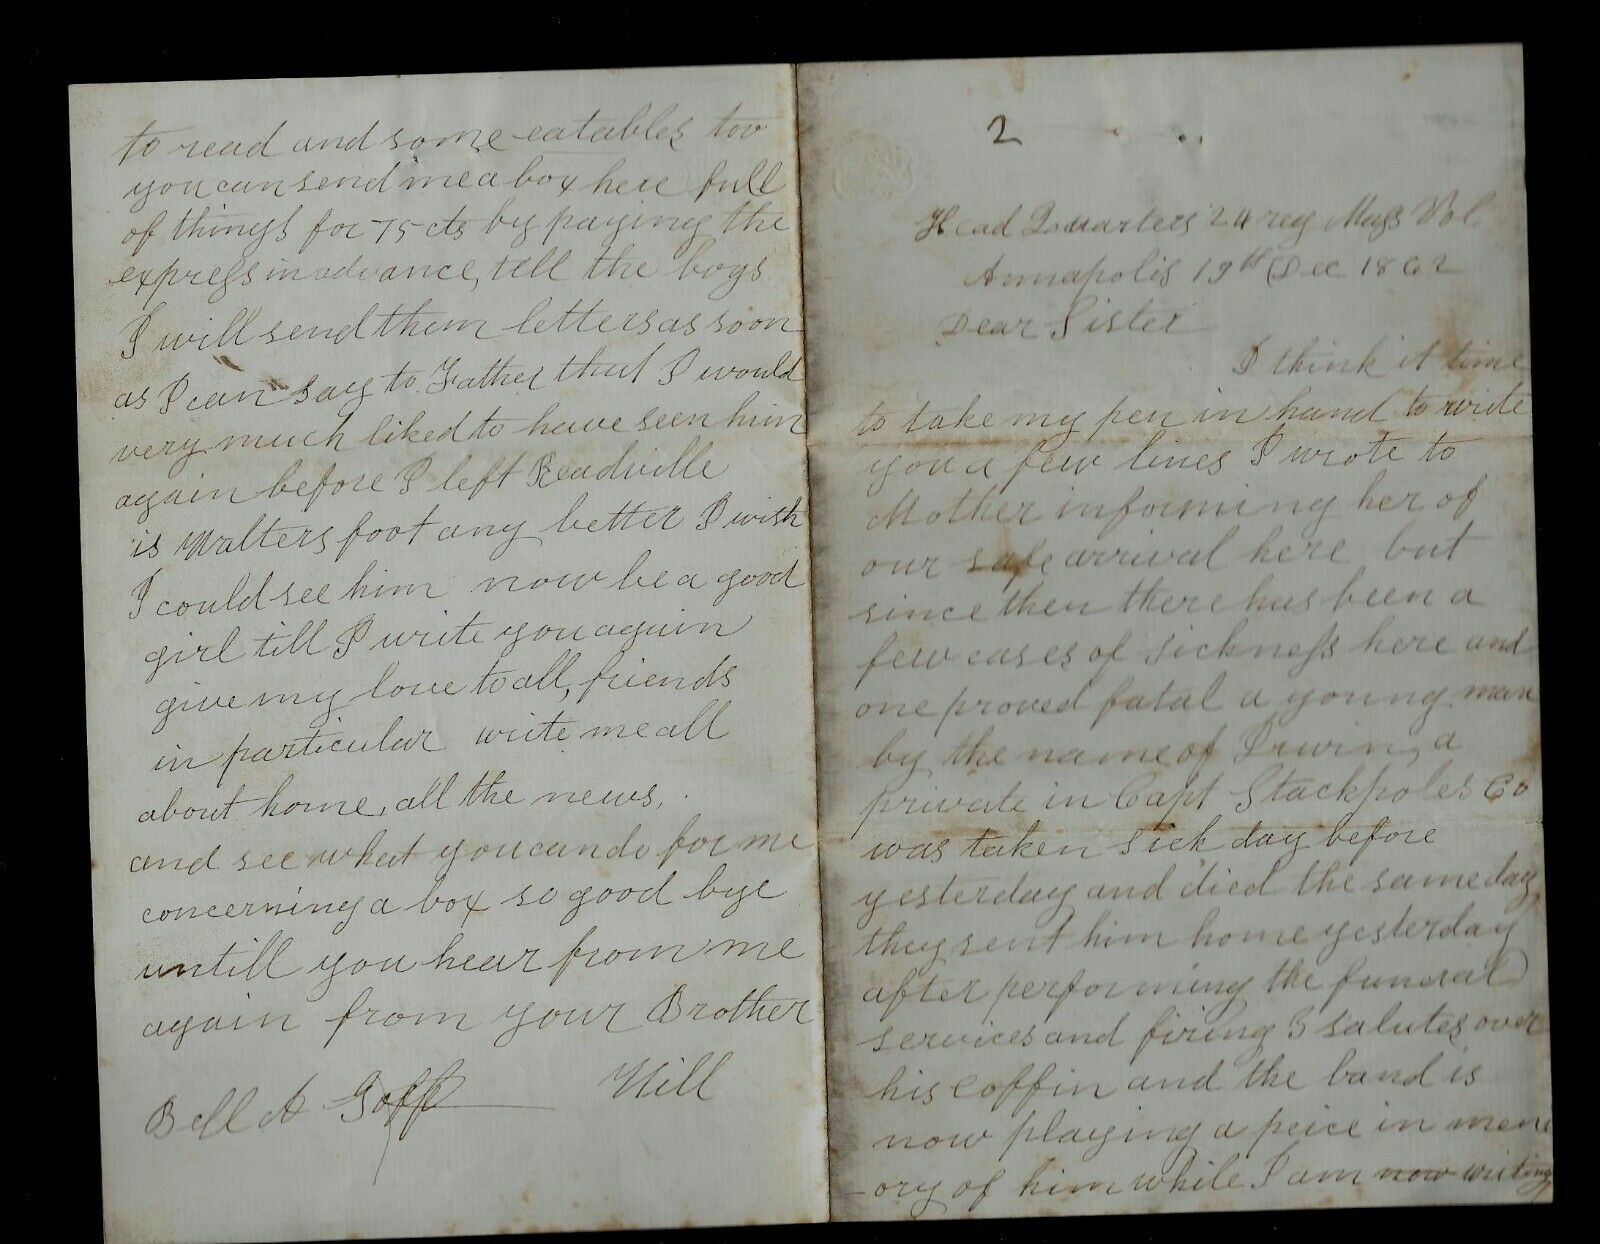 2
Head Quarters 24 reg Mass Vol
Annapolis 19th Dec 1862
Dear Sister
I think it time
to take my pen in hand to write
you a few lines I wrote to
Mother informing her of
our safe arrival here but
since then there has been a
few cases of sickness here and
one proved fatal a young man
by the name of Irwin, a
private in Capt Stackpoles Co
was taken sick day before
yesterday and died the same day,
they sent him home yesterday
after performing the funeral
services and firing 3 salutes over
his coffin and the band is
now playing a peice in mem
-ory of him while I am now writing
to read and some eatables too
you can send me a box here full
of things for 75 cts by paying the
express in advance, tell the boys
I will send them letters as soon
as I can say to Father that I would
very much liked to have seen him
again before I left Readville
is Walters foot any better I wish
I could see him now be a good
girl till I write you again
give my love to all, friends
in particular write me all
about home, all the news,
and see what you can do for me
concerning a box so good bye
untill you hear from me
again from your Brother
Will
Bell A Goff